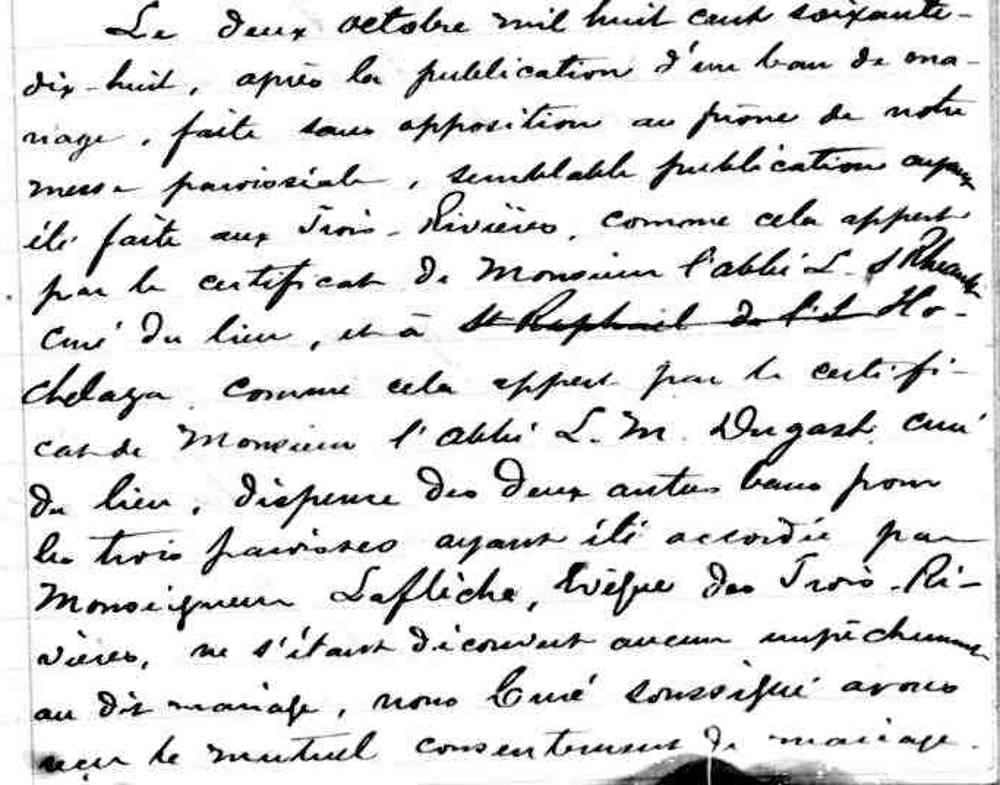 Le deux octobre mil huit cent soixante-
dix-huit, après la publication d'un ban de ma-
riage, faite sans opposition au prône de notre
messe paroissiale, semblable publication ayant
été faite aux Trois-Rivières, comme cela appert
par le certificat de Monsieur l'abbé L. S Rheault
curé du lieu, et à St Raphael de l'I Ho-
chelaga comme cela appert par le certifi-
cat de Monsieur l'abbé L. M. Dugast, curé
du lieu, dispense des deux autres bans pour
les trois paroisses ayant été accordée par
Monseigneur Laflèche, Evêque des Trois-Ri-
vières, ne s'étant découvert aucun empêchement
au dit mariage, nous Curé soussigné avons
reçu le mutuel consentement de mariage.